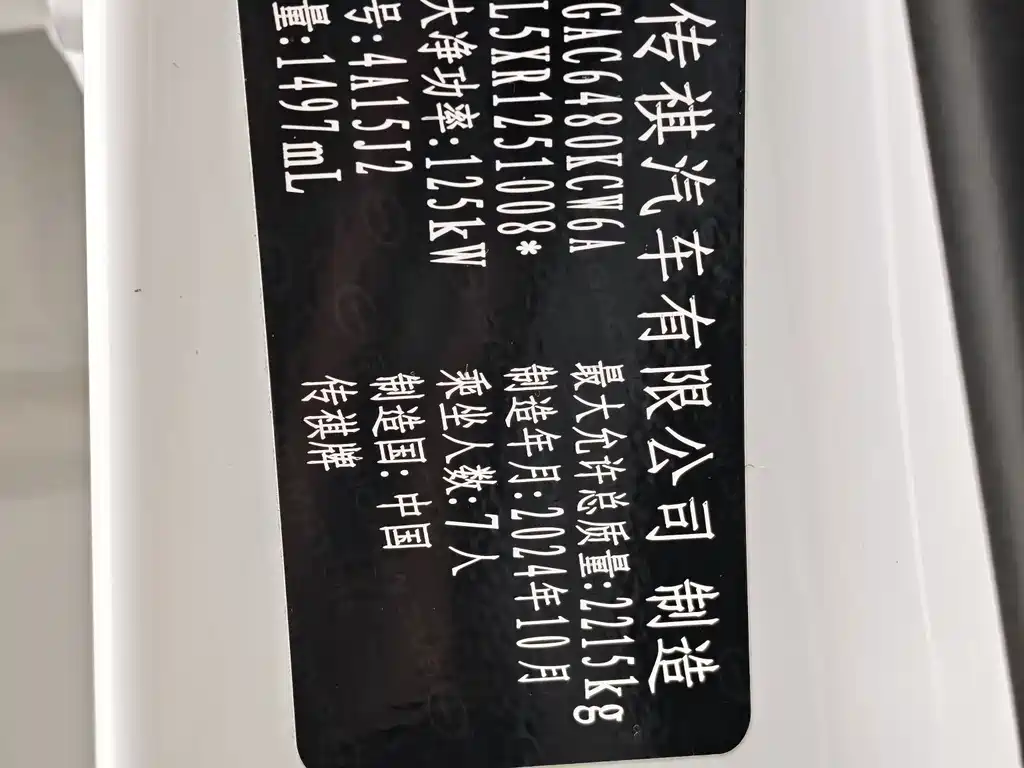 传祺汽车有限公司 制造
GAC6480KCW6A 最大允许总质量:2215kg
L5XR1251008* 制造年月:2024年10月
大净功率:125kW 乘坐人数:7人
号:4A15J2 制造国:中国
量:1497mL 传祺牌